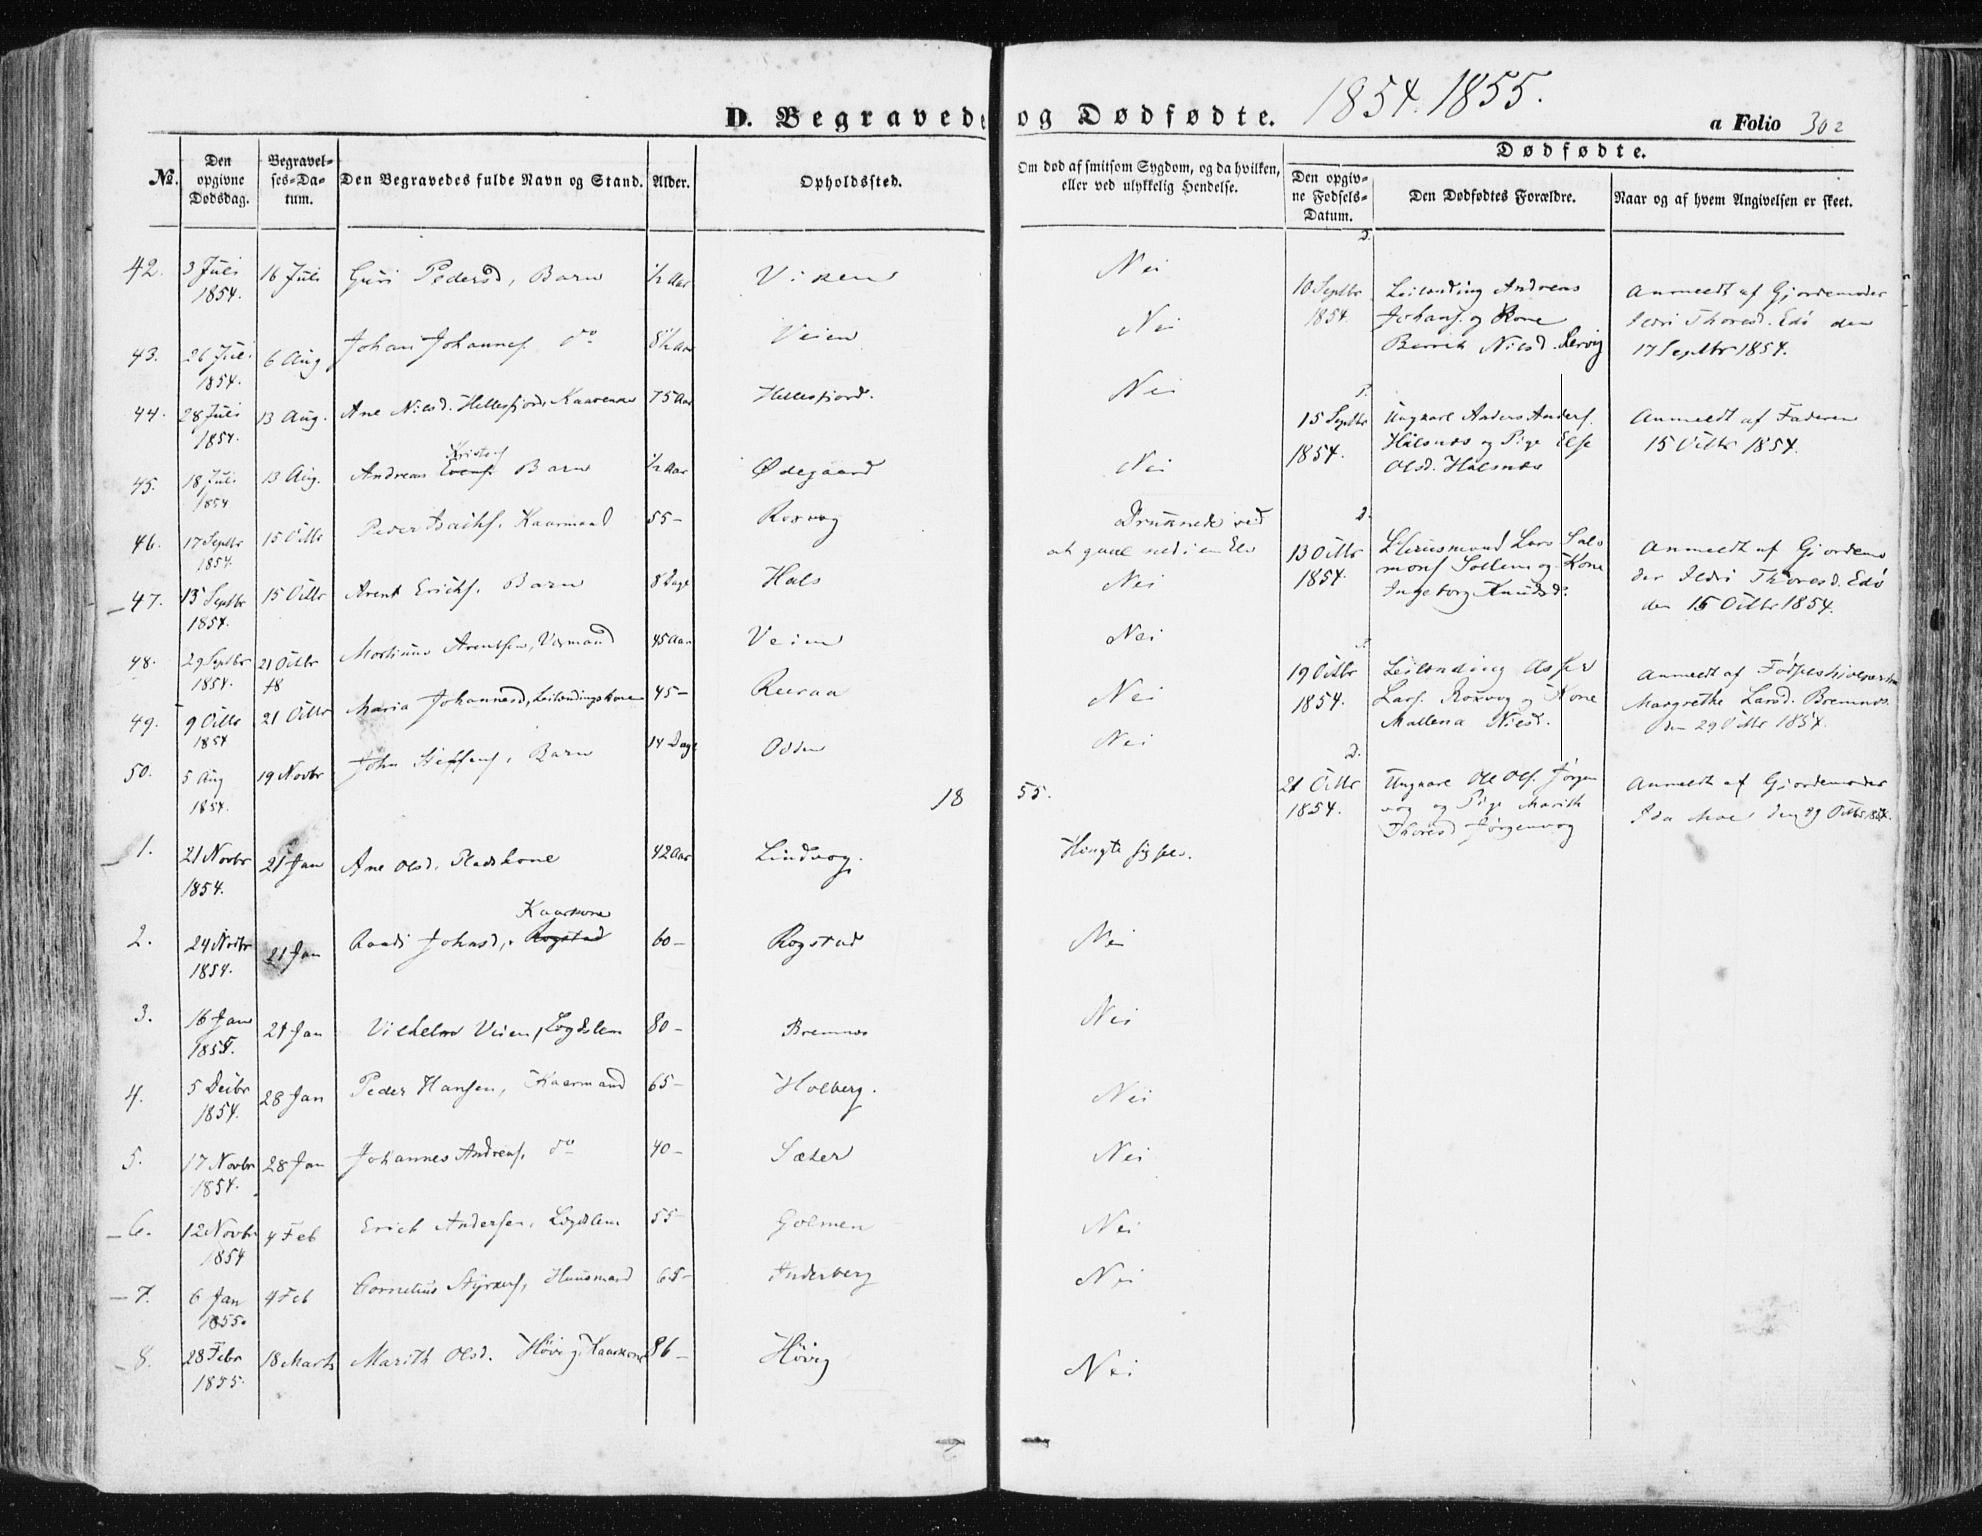 D. Begravede og Dødfødte. 1854. 1855.
a Folio 302
№.
Den opgivne Dødsdag.
Begravelses-Datum.
Den Begravedes fulde Navn og Stand.
Alder.
Opholdssted.
Om død af smitsom Sygdom, og da hvilken, eller ved ulykkelig Hendelse.
Dødfødte.
Den opgivne Fødsels-Datum.
Den Dødfødtes Forældre.
Naar og af hvem Angivelsen er skeet.
42. 3 Juli 1854. 16 Juli Guri Pedersd, Barn ½ Aar Viken Nei
43. 26 Juli 1854. 6 Aug Johan Johannes. do 8½ Aar Veien Nei
44. 28 Juli 1854. 13 Aug. Ane Nilsd. Hellesfjord, Kaarenke 75 Aar Hellesfjord. Nei
Kristens
45. 18 Juli 1854 13 Aug. Andreas Evens. Barn ½ Aar Ødegaard Nei
46. 17 Septbr 1854. 15 Octbr Peder Isachs. Kaarmand 55 - Roxvog Druknede ved
at gaae ned i en Elv
47. 13 Septbr 1854. 15 Octbr Arent Erichs. Barn 8 Dage Hals Nei
48. 29 Septbr 1854. 21 Octbr Mortinus Arentsen, 45 Aar Veien Nei
18
49. 9 Octbr 1854 21 Octbr Maria Johannesd, Leilændingskone 45 - Reeraa Nei
50. 5 Aug 1854. 19 Novbr John Steffens, Barn 14 Dage Odden Nei
1855.
1. 21 Novbr 1854. 21 Jan Ane Olsd. Pladskone 42 Aar Lindvog. Hengte sig selv.
Kaarkone
2. 24 Novbr 1854. 21 Jan Raadi Johnsd, Rogstad 60 - Rogstad Nei
3. 16 Jan 1855. 21 Jan Vilhelm Veien, Lægdslem 80 - Bremnæs Nei
4. 5 Decbr 1854. 28 Jan Peder Hansen, Kaarmand 65 - Holberg. Nei
5. 17 Novbr 1854. 28 Jan Johannes Andreas. do 40 - Sæter Nei
6. 12 Novbr 1854 4 Feb Erich Andersen, Lægdslem 55 - Golmen Nei
7. 6 Jan 1855. 4 Feb Cornelius Styrkers, Huusmand 65 - Inderberg Nei
8. 28 Febr 1855. 18 Marts Marith Olsd. Høvig, Kaarkone 86 - Høvig Nei
D.
10 Septbr 1854. Leilænding Andreas
Johans. og Kone
Berith Nilsd. Lervig
Anmeldt af Gjordemoder
Ildri Thoresd. Edø den
17 Septbr 1854.
P.
15 Septbr 1854. Ungkarl Anders Anders.
Halsnæs og Pige Else
Olsd. Halsnæs
Anmeldt af Faderen
15 Octbr 1854.
D.
13 Octbr 1854. Huusmand Lars Salo
mons Sollem og Kone
Ingeborg Knudsd.
Anmeldt af Gjordemo
der Ildri Thoresd. Edø
den 15 Octbr 1854.
19 Octbr 1854. Leilænding Asker
Lars. Roxvog og Kone
Mallena Nilsd.
Anmeldt af Fødselshjelpersken
Margrethe Larsd. Bremnæs
den 29 Octbr 1854.
D.
21 Octbr 1854. Ungkarl Ole Ols. Jørgen
vog og Pige Marith
Thoresd Jørgenvog
Anmeldt af Gjordemoder
Ida Moe, den 29 Octbr 1854.